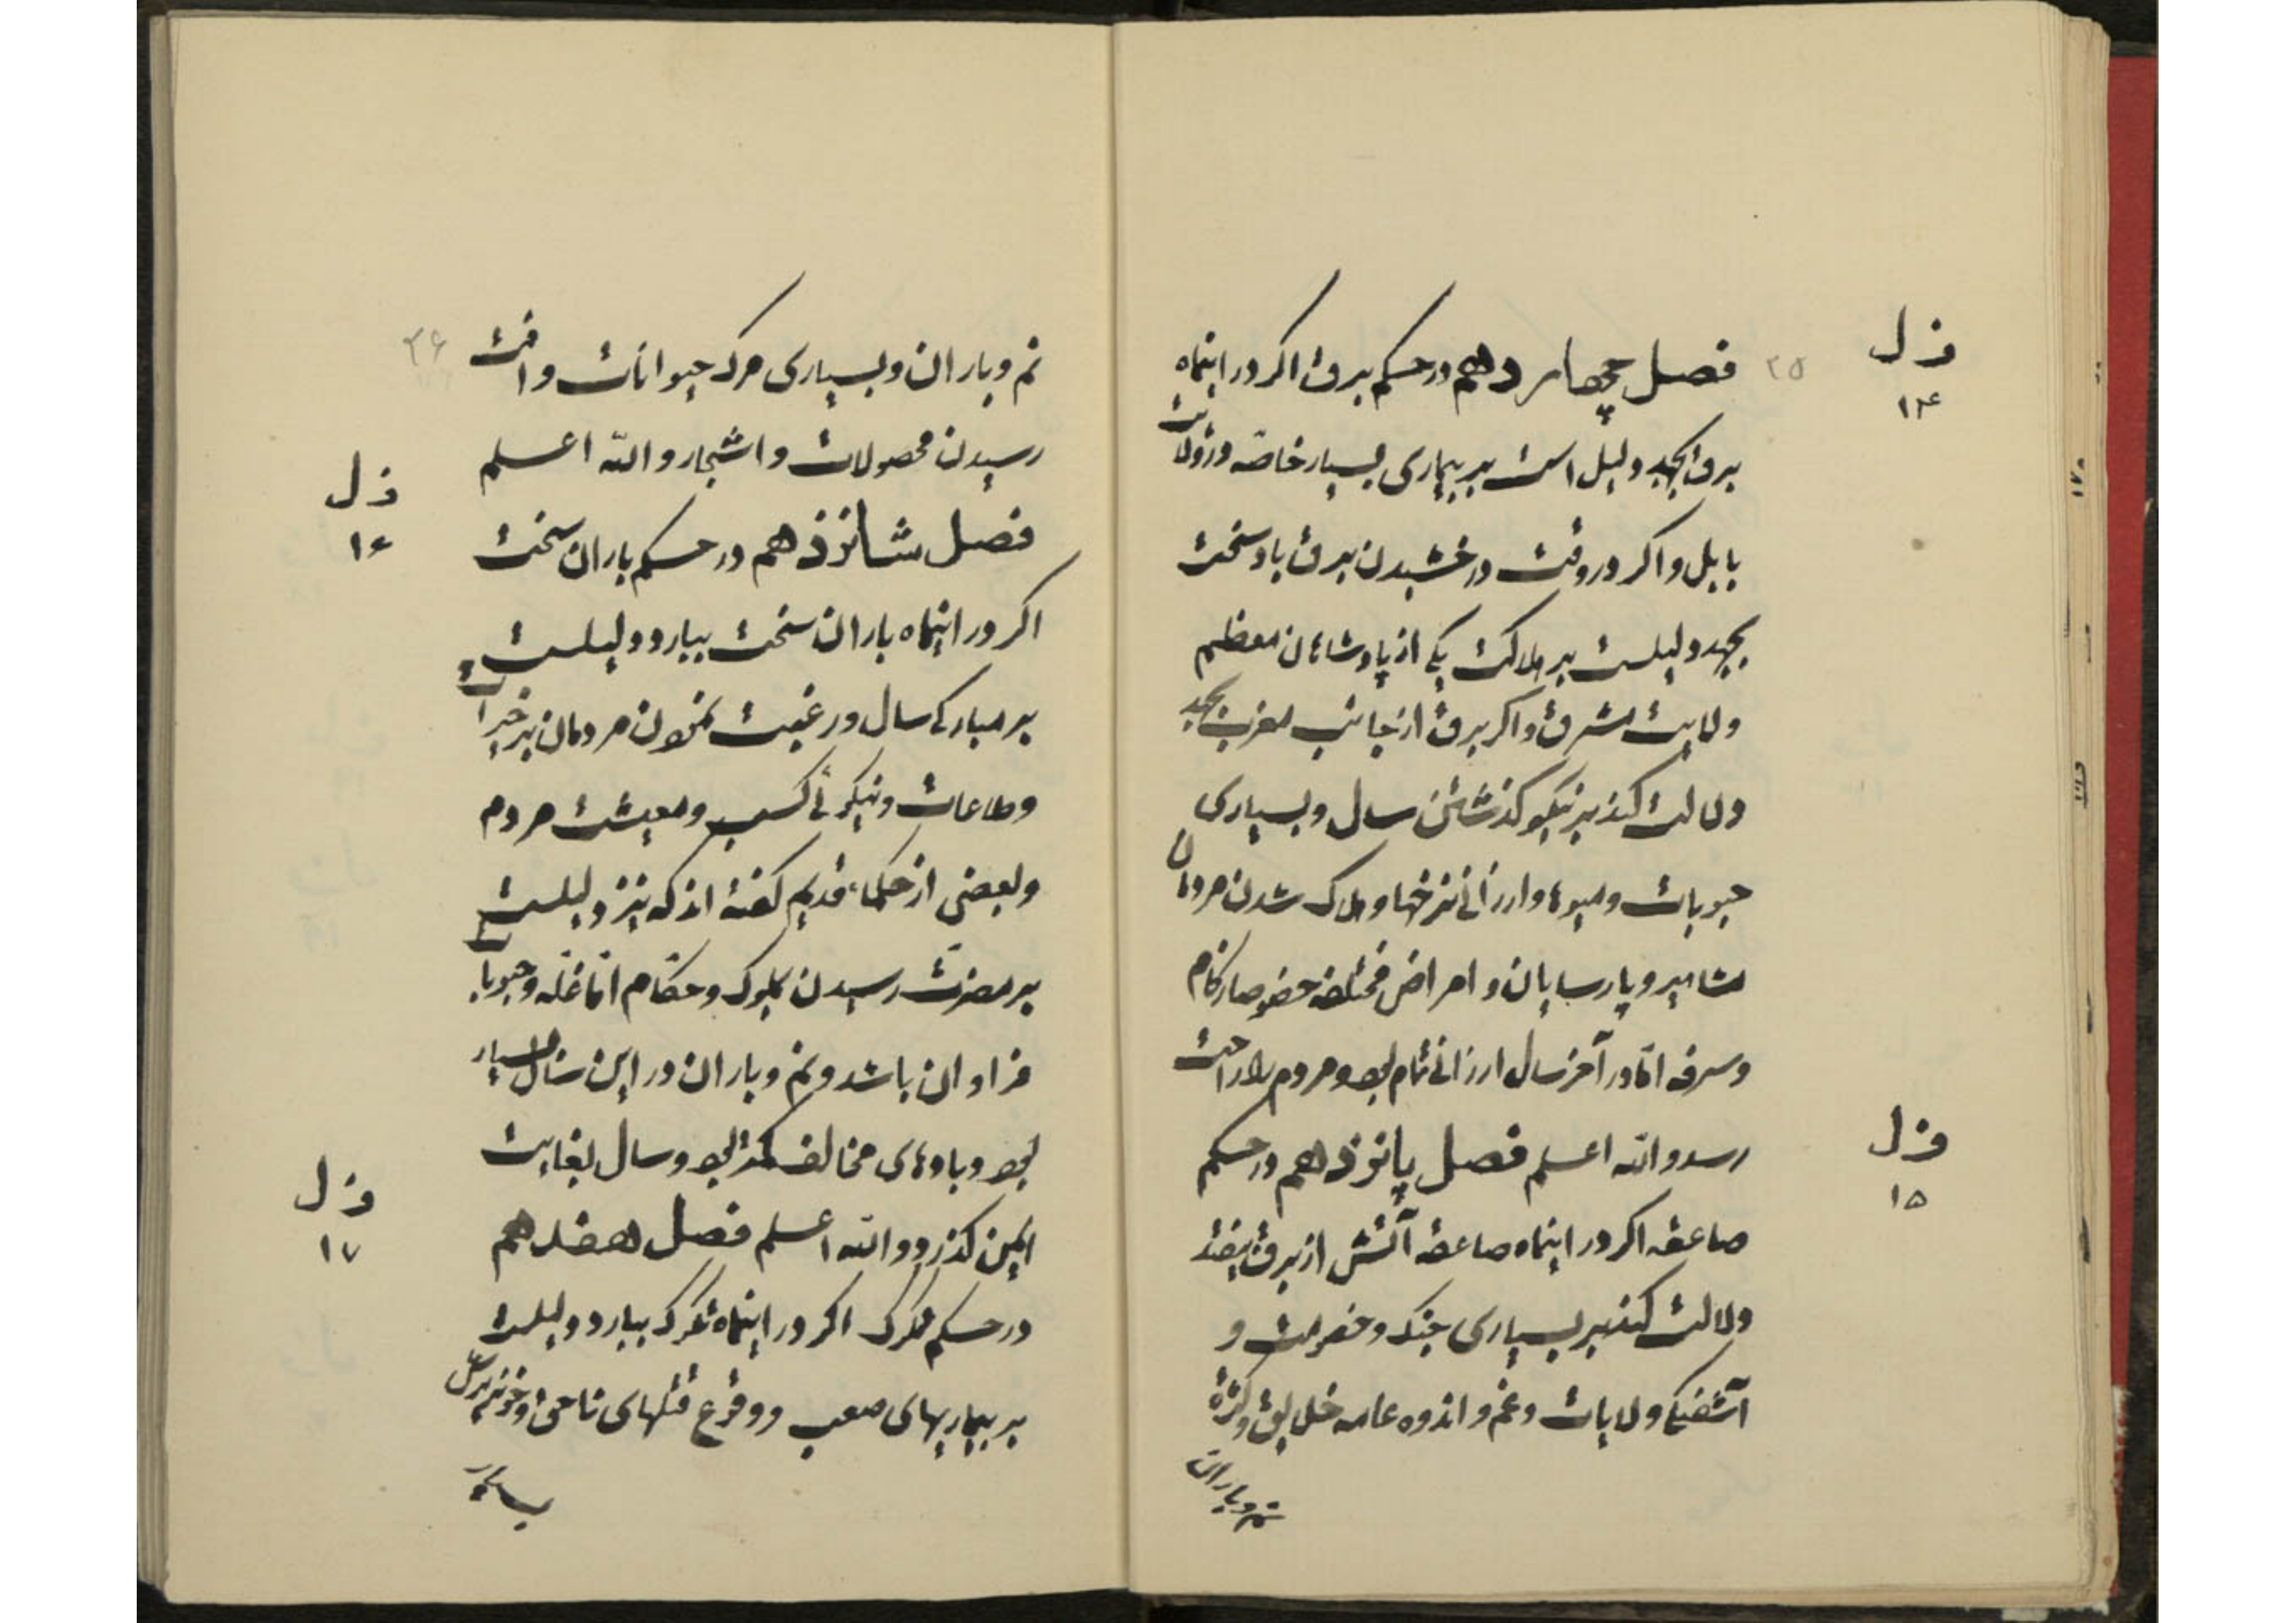 ف ل
۱۴
۲۵
فصل چهاردهم در حکم برق اکر در اینماه
برق بجهد دلیل است بر بیماری بسیار خاصّه در ولایت
بابل و اکر در وقت درخشیدن برق باد سخت
بجهد دلیلست بر هلاکت یکی از پادشاهان معظم
ولایت مشرق و اکر برق از جانب مغرب بجهد
دلالت کند بر نیکو کذشتن سال و بسیاری
حبوبات و میوها و ارزانی نرخها و هلاک شدن مردمان
مشاهیر و پارسایان و امراض مختلفه خصوصا زکام
و سرفه امّا در آخر سال ارزانی تمام بود و مردم را راحت
رسد والله اعلم فصل پانزدهم در حکم
ف ل
۱۵
صاعقه اکر در اینماه صاعقه آتش از برق بیفتد
دلالت کند بر بسیاری جنک و خصومت و
آشفتکی ولایات و غم و اندوه عامه خلایق و کثرة
نم و باران
۲۶
نم و باران و بسیاری مرک حیوانات و آفت
رسیدن محصولات و اشجار والله اعلم
ف ل
۱۶
فصل شانزدهم در حکم باران سخت
اکر در اینماه باران سخت ببارد دلیلست
بر مبارکی سال و رغبت نمودن مردمان بر خیرات
و طاعات و نیکوئی کسب و معیشت مردم
و بعضی از حکماء قدیم کفته اند که نیز دلیلست
بر مضرت رسیدن بملوک و حکّام امّا غلّه و حبوبات
فراوان باشد و نم و باران در این سال بسیار
بود و بادهای مخالف کمتر بود و سال بغایت
ف ل
۱۷
ایمن کذرد والله اعلم فصل هفدهم
در حکم تکرک اکر در اینماه تکرک ببارد دلیلست
بر بیماریهای صعب و وقوع قتلهای ناحق و خونریزی